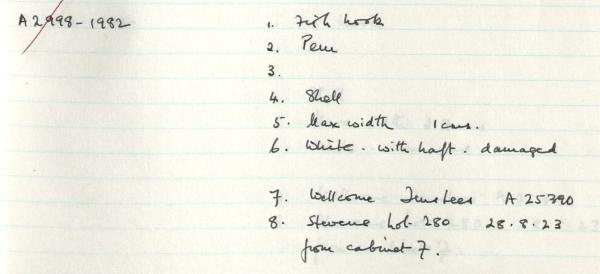 A2998-1982 1. Fish hook
2. Peru
3.
4. Shell
5. Max width 1 cms.
6. White. with haft. damaged
7. Wellcome Trustees A 25390
8. Stevens Lot 280 28.8.23
from cabinet 7.